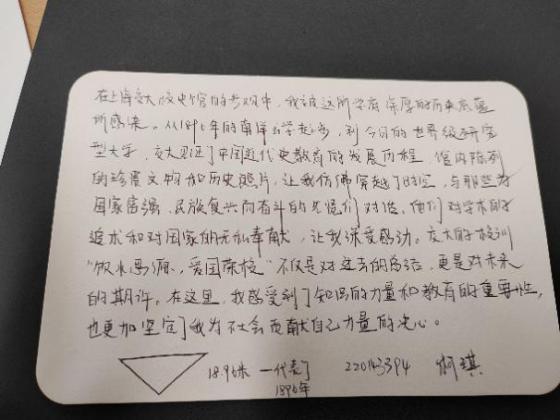 在上海交大校史馆的参观中，我被这所学府深厚的历史底蕴
所感染。从1896年的南洋公学起步，到今日的世界级研究
型大学，交大见证了中国近代史教育的发展历程，馆内陈列
的珍贵文物和历史照片，让我仿佛穿越了时空，与那些为
国家富强、民族复兴而奋斗的先贤们对话。他们对学术的
追求和对国家的无私奉献，让我深受感动。交大的校训
“饮水思源，爱国荣校”不仅是对过去的总结，更是对未来
的期许。在这里，我感受到了知识的力量和教育的重要性，
也更加坚定了我为社会贡献自己力量的决心。
18.96米 一代表了
1896年
琪